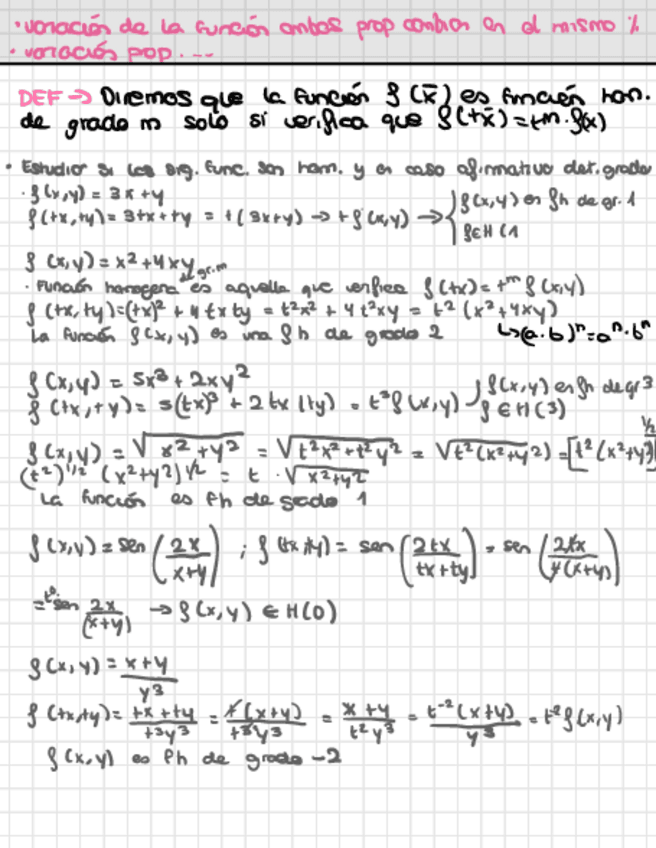 · variación de la función ambas prop cambian en el mismo %
· variación prop. ...
DEF → Diremos que la función f(x̄) es función hom.
de grado m solo si verifica que f(tx̄)=t^m·f(x)
· Estudiar si las sig. func. son hom. y en caso afirmativo det. grado
· f(x,y) = 3x+y
f(tx,ty) = 3tx+ty = t(3x+y) → t f(x,y) → { f(x,y) es fh de gr. 1
f∈H(1
f(x,y) = x²+4xy
de gr. m
· Función homogénea es aquella que verifica f(tx) = t^m f(x,y)
f(tx,ty)=(tx)² + 4 tx ty = t²x² + 4t²xy = t² (x²+4xy)
La función f(x,y) es una fh de grado 2 ↳(a·b)ⁿ=aⁿ·bⁿ
f(x,y) = 5x³ + 2xy²
f(tx,ty) = 5(tx)³ + 2tx (ty) = t³f(x,y) { f(x,y) es fh de gr 3
f∈H(3)
f(x,y) = √x²+y² = √t²x²+t²y² = √t²(x²+y²) = [t²(x²+y²)]^1/2
(t²)^1/2 (x²+y²)^1/2 = t · √x²+y²
La función es fh de grado 1
f(x,y) = sen (2x/(x+y)) ; f(tx,ty) = sen (2tx/(tx+ty)) = sen (2tx/(t(x+y)))
= t⁰ · sen 2x/(x+y) → f(x,y) ∈ H(0)
f(x,y) = (x+y)/y³
f(tx,ty) = (tx+ty)/(t³y³) = t(x+y)/(t³y³) = (x+y)/(t²y³) = t⁻²(x+y)/y³ = t⁻²f(x,y)
f(x,y) es fh de grado -2